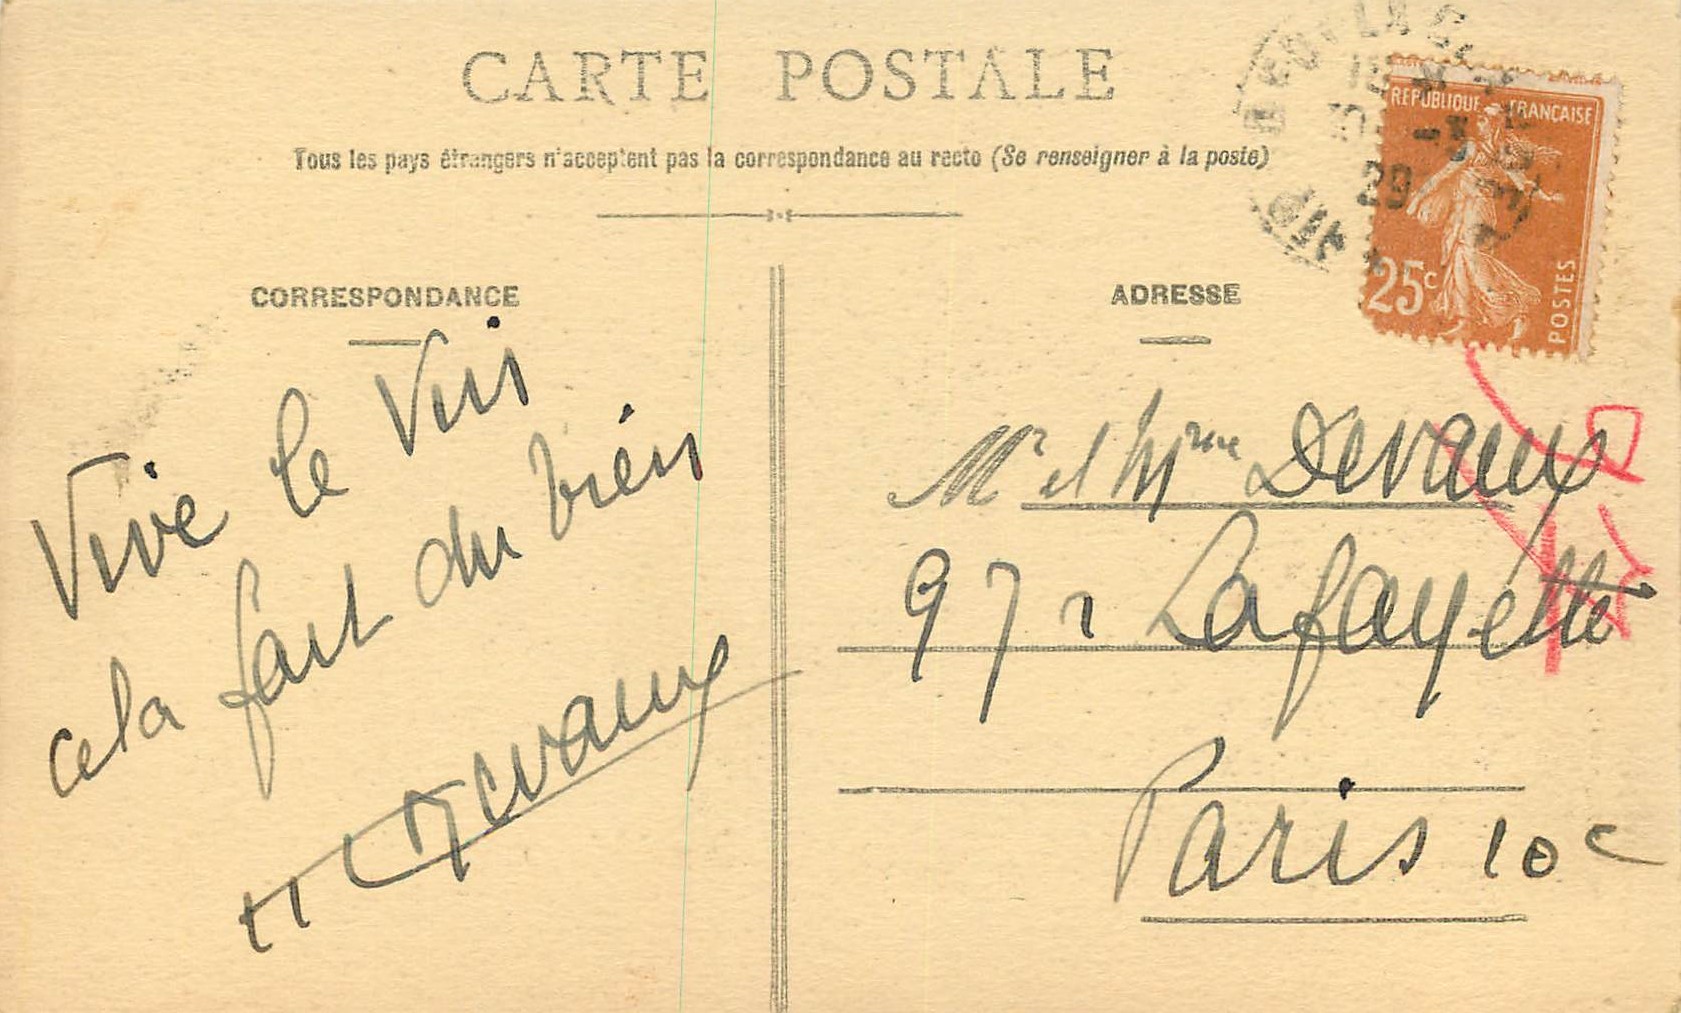 CARTE POSTALE
Tous les pays étrangers n'acceptent pas la correspondance au recto (Se renseigner à la poste)
REPUBLIQUE FRANÇAISE
25c
POSTES
-3
29
CORRESPONDANCE
Vive le Vin
cela fait du bien
Devaux
ADRESSE
Mr et Mme Devaux
97 r Lafayette
Paris 10e